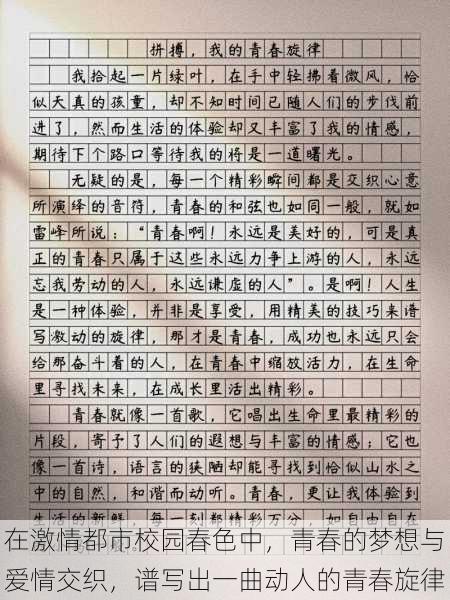 拼搏，我的青春旋律
我拾起一片绿叶，在手中轻拂着微风，恰
似天真的孩童，却不知时间已随人们的步伐前
进了，然而生活的体验却又丰富了我的情感，
期待下个路口等待我的将是一道曙光。
无疑的是，每一个精彩瞬间都是交织心意
所演绎的音符，青春的和弦也如同一般，就如
雷峰所说：“青春啊！永远是美好的，可是真
正的青春只属于这些永远力争上游的人，永远
忘我劳动的人，永远谦虚的人”。是啊！人生
是一种体验，并非是享受，用精美的技巧来谱
写激动的旋律，那才是青春，成功也永远只会
给那奋斗着的人，在青春中缩放活力，在生命
里寻找未来，在成长里活出精彩。
青春就像一首歌，它唱出生命里最精彩的
片段，寄予了人们的遐想与丰富的情感；它也
像一首诗，语言的狭陋却能寻找到恰似山水之
中的自然，和谐而动听。青春，更让我体验到
生活的新鲜，每一刻都精彩万分，如自由自在
在激情都市校园春色中，青春的梦想与
爱情交织，谱写出一曲动人的青春旋律